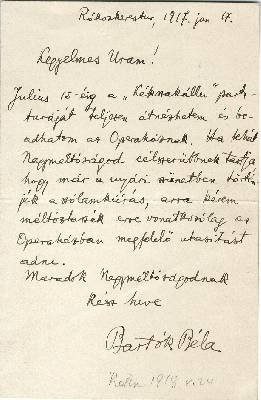 Rákoskeresztur, 1917. jun 17.
Kegyelmes Uram!
Julius 15-éig a „Kékszakállu" parti-
turáját teljesen átnézhetem és be-
adhatom az Operaháznak. Ha tehát
Nagyméltóságod célszerűnek tartja
hogy már a nyári szünetben történ-
jék a szólamkiírás, arra kérem
méltóztassék erre vonatkozólag az
Operaházban megfelelő utasítást
adni.
Maradok Nagyméltóságodnak
kész híve
Bartók Béla
1918 v. 24